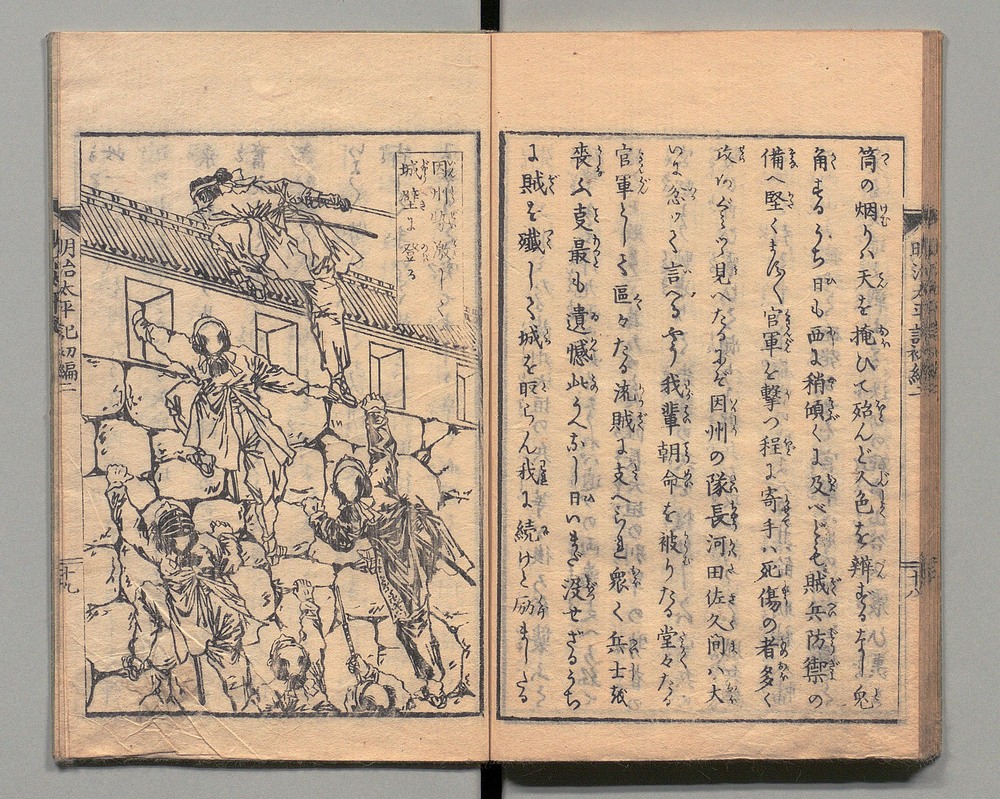 筒の烟りハ天を掩ひて殆んど人色を辨まるなし兎
角まるうち日も西に稍傾くに及べども賊兵防禦の
備へ堅くまた〱官軍を撃つ程に寄手ハ死傷の者多く
見へたる 因州の隊長河田佐久間ハ大
言へるやう我輩朝命を被りたる堂々たる
官軍として區々たる流賊に支へられ衆く兵士を
喪ふ 最も遺憾此うへなし日いまだ没せざるうち
に賊を殱して城を取らん我に続けと励ましたる
明治太平記初編二
十八
因州勢激して
城壁に登る
明治太平記初編二
十九